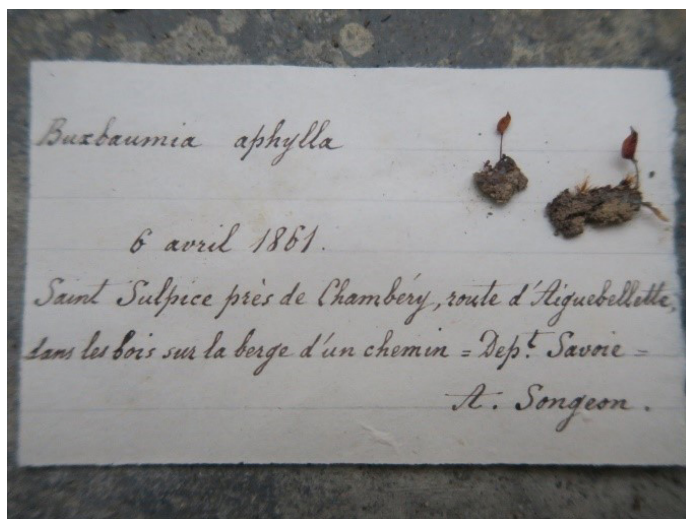 Buxbaumia aphylla
6 avril 1861.
Saint Sulpice près de Chambéry, route d'Aiguebellette,
dans les bois sur la berge d'un chemin = Dept. Savoie =
A. Songeon.